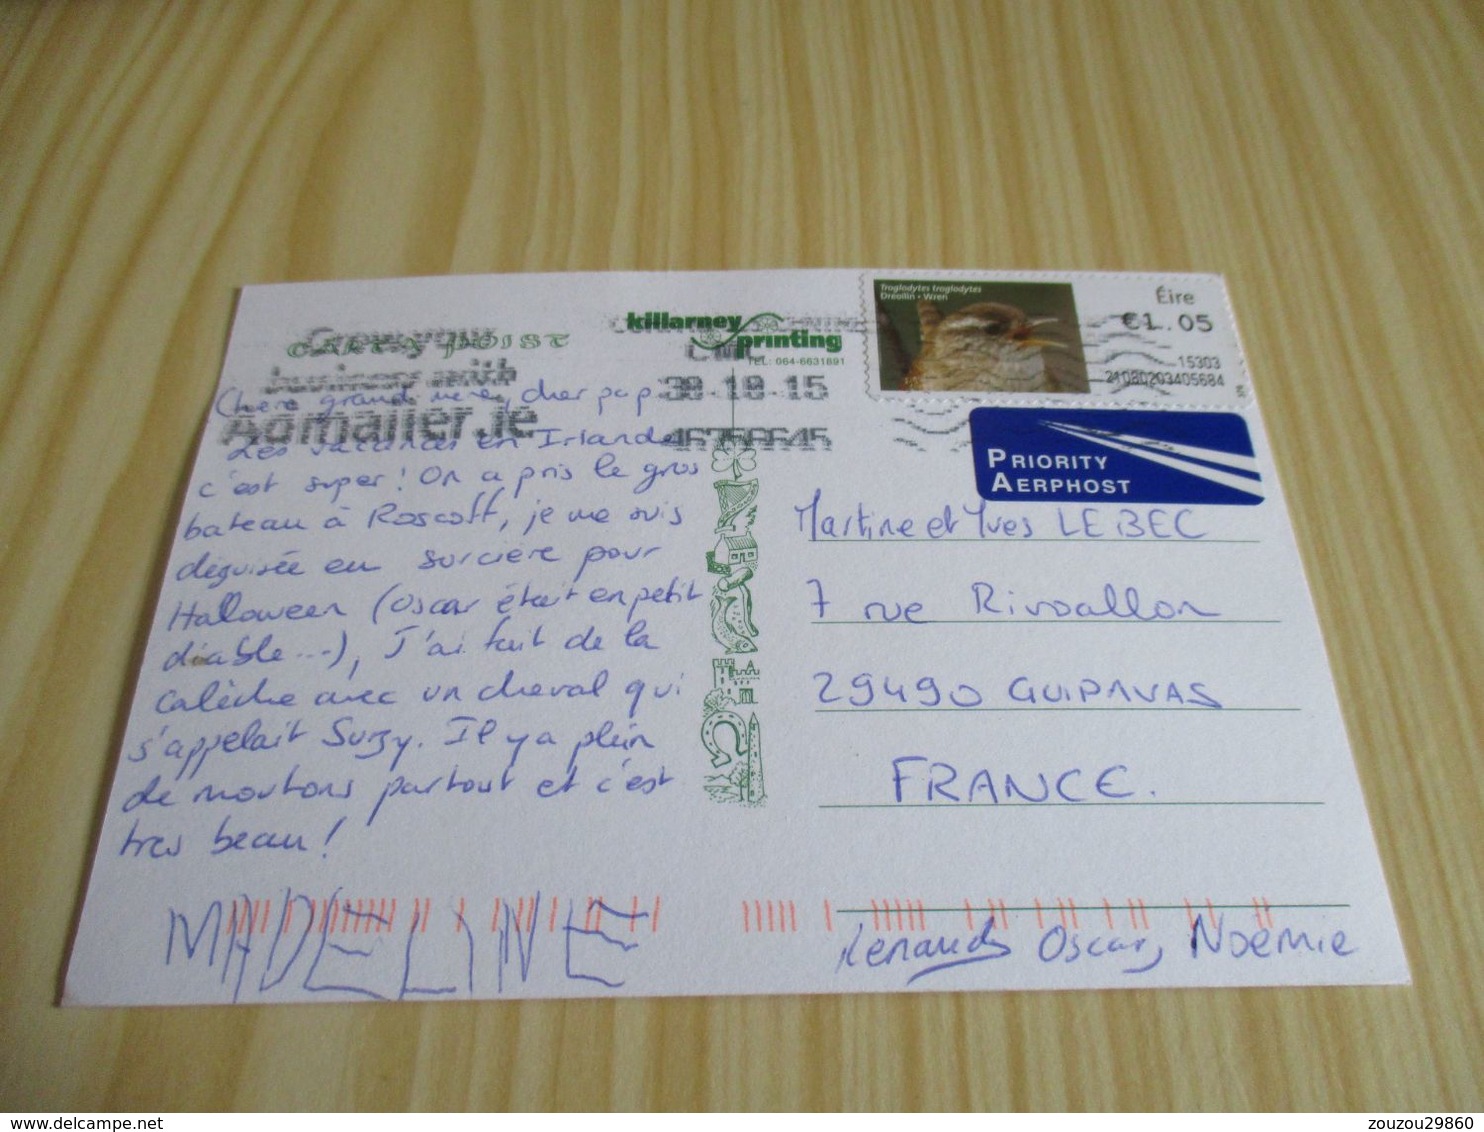 Grow your
business with
Admailer.ie
CÁRTA POIST
killarney
printing
TEL: 064-6631891
CMC
30-10-15
46756645
Troglodytes troglodytes
Dreoilín • Wren
Éire
€1.05
15303
21080203405684
PRIORITY
AERPHOST
Chère grand mère, cher pap
Les vacances en Irlande
c'est super! On a pris le gros
bateau à Roscoff, je me suis
déguisée en sorcière pour
Halloween (Oscar était en petit
diable...), J'ai fait de la
calèche avec un cheval qui
s'appelait Suzy. Il y a plein
de moutons partout et c'est
tres beau!
MADELINE
Martine et Yves LE BEC
7 rue Rivoallon
29490 GUIPAVAS
FRANCE.
Renaud, Oscar, Noémie
zouzou29860